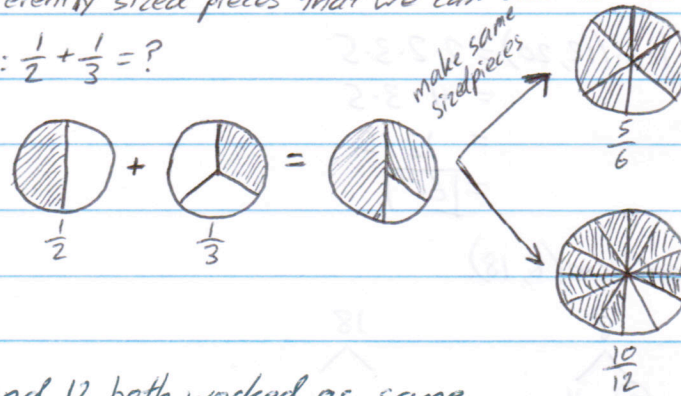 erently sized pieces that we can
: 1/2 + 1/3 = ?
make same
sized pieces
+ =
1/2
1/3
5/6
10/12
nd 12 both worked as same